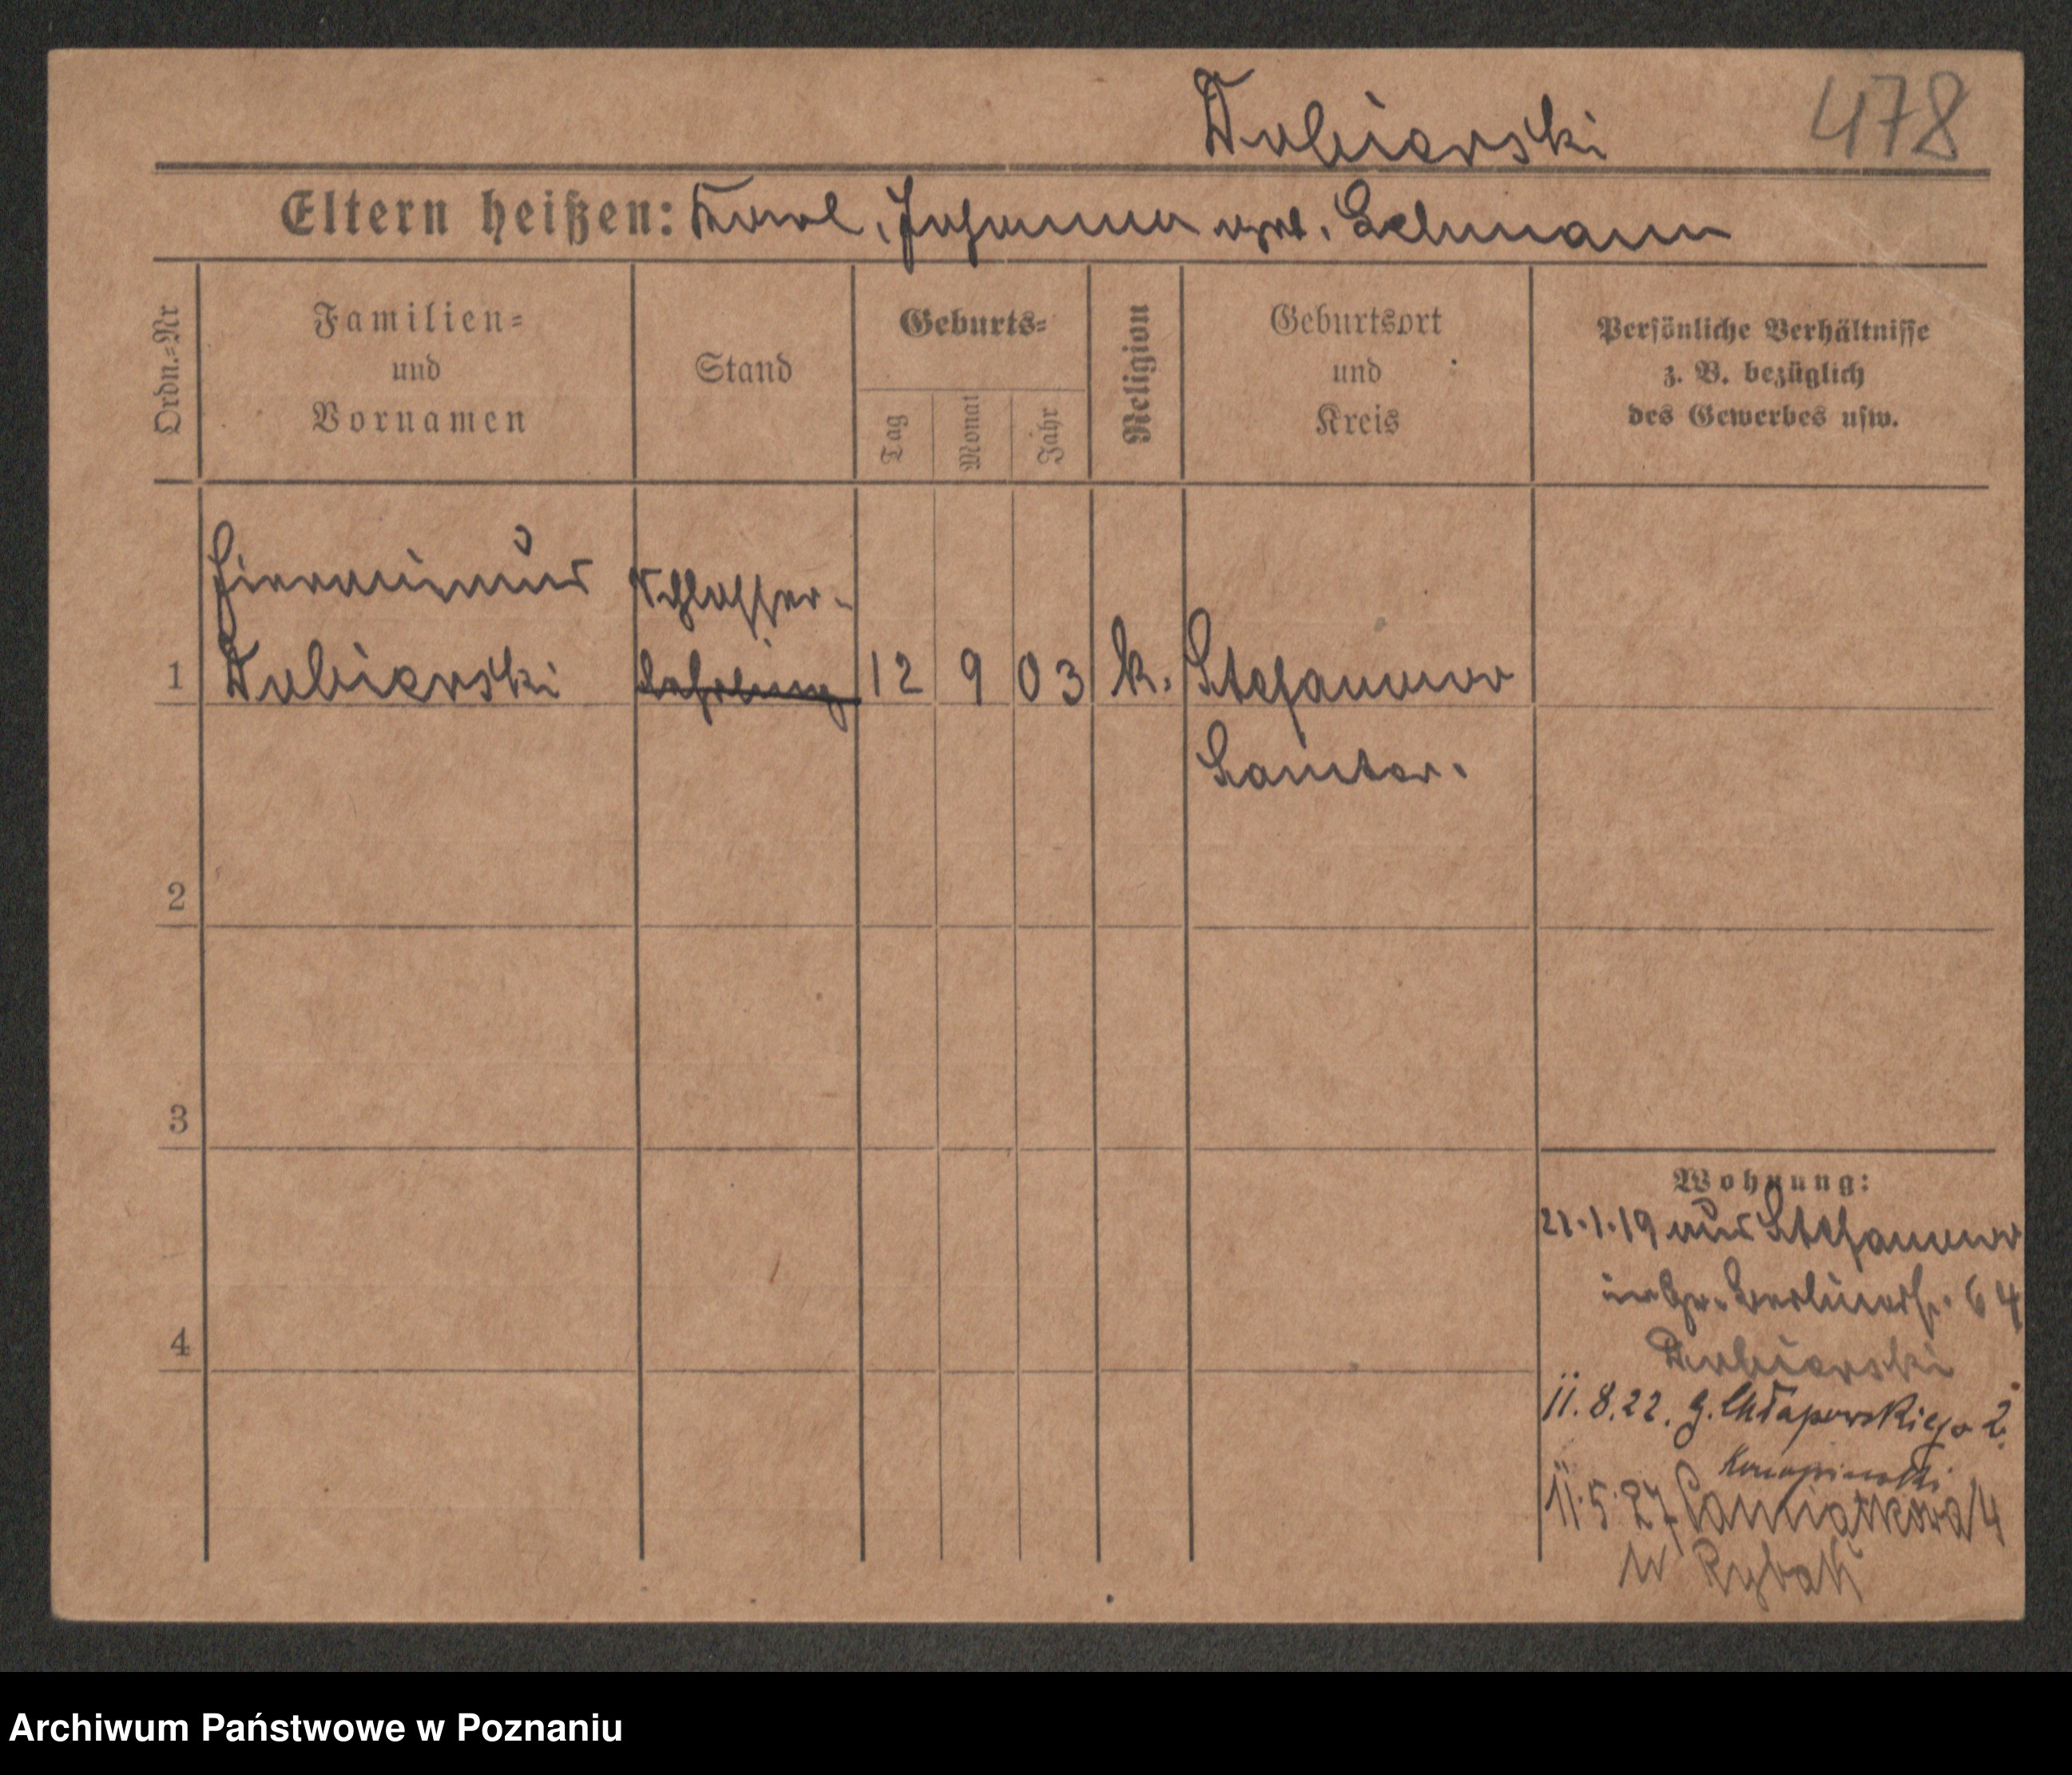 Dubierski 478
Eltern heißen: Karl, Johanna geb. Lehmann
Ordn.=Nr
Familien=
und
Vornamen
Stand
Geburts=
Tag
Monat
Jahr
Religion
Geburtsort
und
Kreis
Persönliche Verhältnisse
z. B. bezüglich
des Gewerbes usw.
Hieronimus Schlosser-
1 Dubierski lehrling 12 9 03 k. Stefanowo
Samter.
2
3
4
Wohnung:
21.1.19 aus Stefanowo
Gr. Berlinerstr. 64
Dubierski
11.8.22. G. Chłapowskiego 2.
Konopinski
11.5.27 Pamiątkowa 4
Rybak
Archiwum Państwowe w Poznaniu